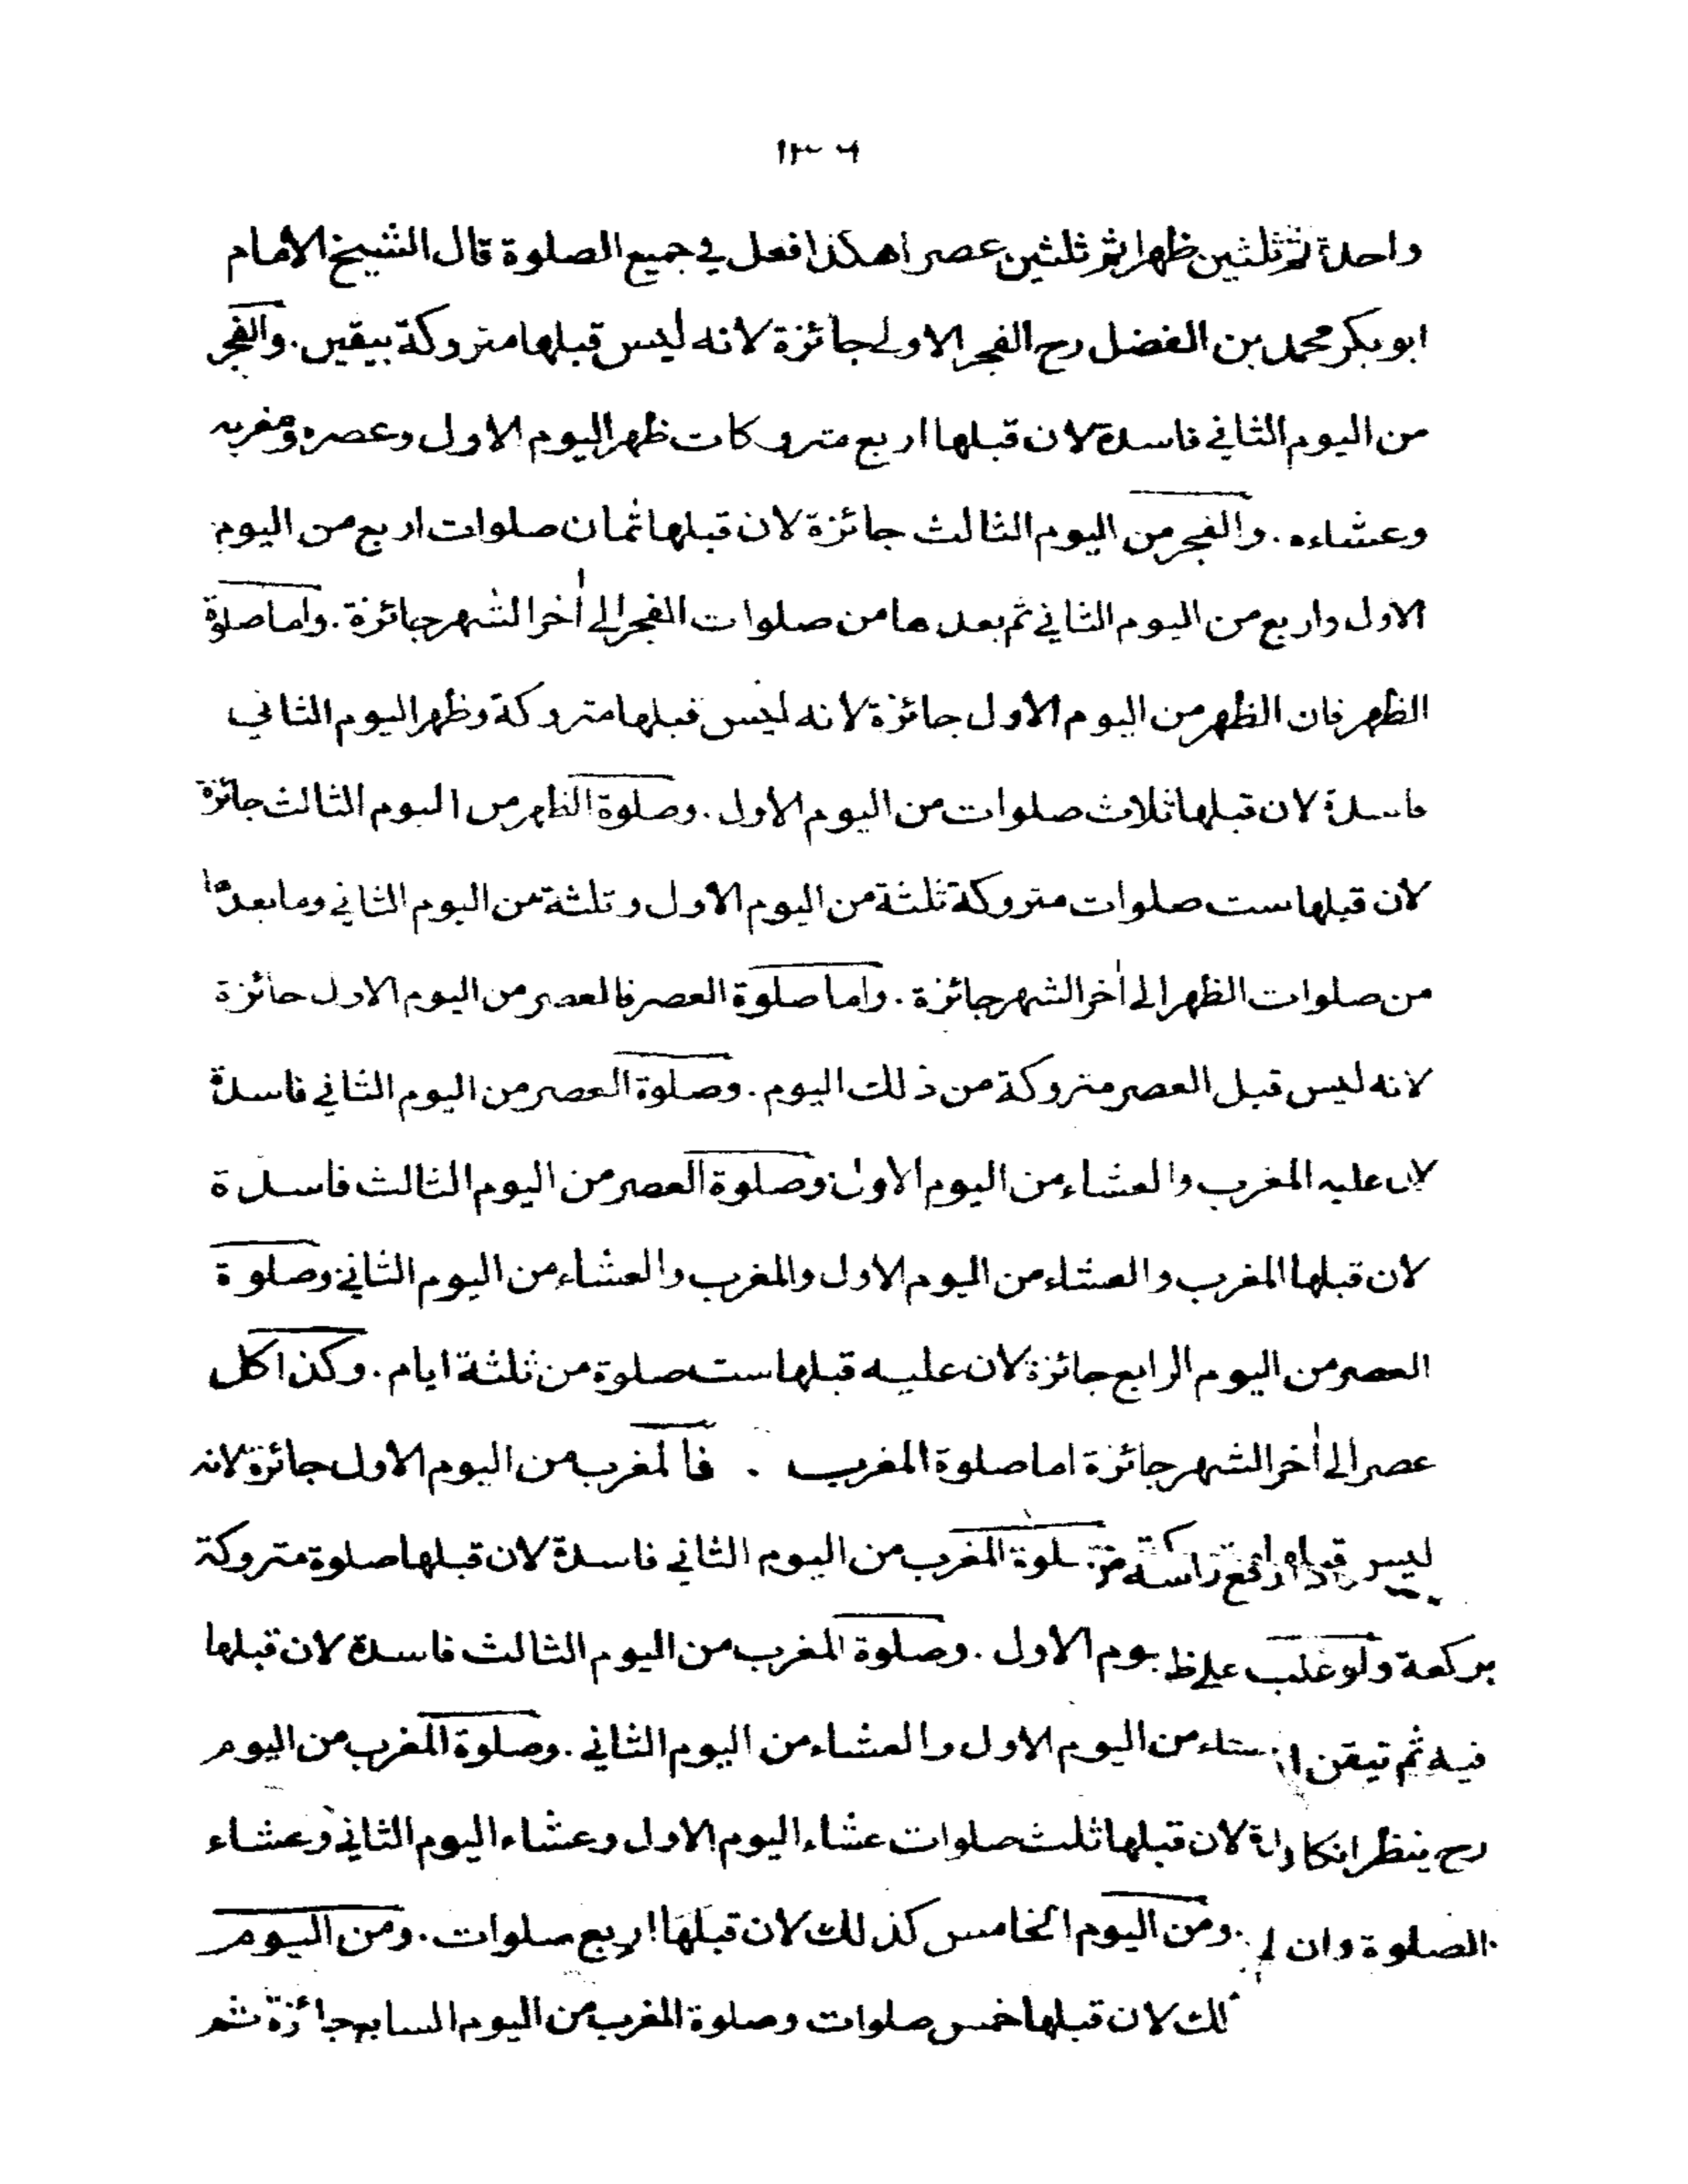 ١٣٦
واحدة ثم ثلثين ظهرا ثم ثلثين عصرا هكذا فعل في جميع الصلوة قال الشيخ الامام
ابو بكر محمد بن الفضل رح الفجر الاولى جائزة لانه ليس قبلها متروكة بيقين. والفجر
من اليوم الثاني فاسدة لان قبلها اربع متروكات ظهر اليوم الاول وعصره ومغربه
وعشاءه. والفجر من اليوم الثالث جائزة لان قبلها ثمان صلوات اربع من اليوم
الاول واربع من اليوم الثاني ثم بعدها من صلوات الفجر الى أخر الشهر جائزة. واما صلوة
الظهر فان الظهر من اليوم الاول جائزة لانه ليس قبلها متروكة وظهر اليوم الثاني
فاسدة لان قبلها ثلاث صلوات من اليوم الاول. وصلوة الظهر من اليوم الثالث جائزة
لان قبلها ست صلوات متروكة ثلثة من اليوم الاول وثلثة من اليوم الثاني وما بعدها
من صلوات الظهر الى أخر الشهر جائزة. واما صلوة العصر فالعصر من اليوم الاول جائزة
لانه ليس قبل العصر متروكة من ذلك اليوم. وصلوة العصر من اليوم الثاني فاسدة
لان عليه المغرب والعشاء من اليوم الاول وصلوة العصر من اليوم الثالث فاسدة
لان قبلها المغرب والعشاء من اليوم الاول والمغرب والعشاء من اليوم الثاني وصلوة
العصر من اليوم الرابع جائزة لان عليه قبلها ست صلوة من ثلثة ايام. وكذا كل
عصر الى أخر الشهر جائزة اما صلوة المغرب. فالمغرب من اليوم الاول جائزة لانه
ليس المغرب من اليوم الثاني فاسدة لان قبلها صلوة متروكة
بركعة ولو غلب على يوم الاول. وصلوة المغرب من اليوم الثالث فاسدة لان قبلها
فيه ثم تيقن من اليوم الاول والعشاء من اليوم الثاني. وصلوة المغرب من اليوم
رح ينظر انكا لان قبلها ثلث صلوات عشاء اليوم الاول وعشاء اليوم الثاني وعشاء
الصلوة وان ومن اليوم الخامس كذلك لان قبلها اربع صلوات. ومن اليوم
لان قبلها خمس صلوات وصلوة المغرب من اليوم السابع جائزة ثم